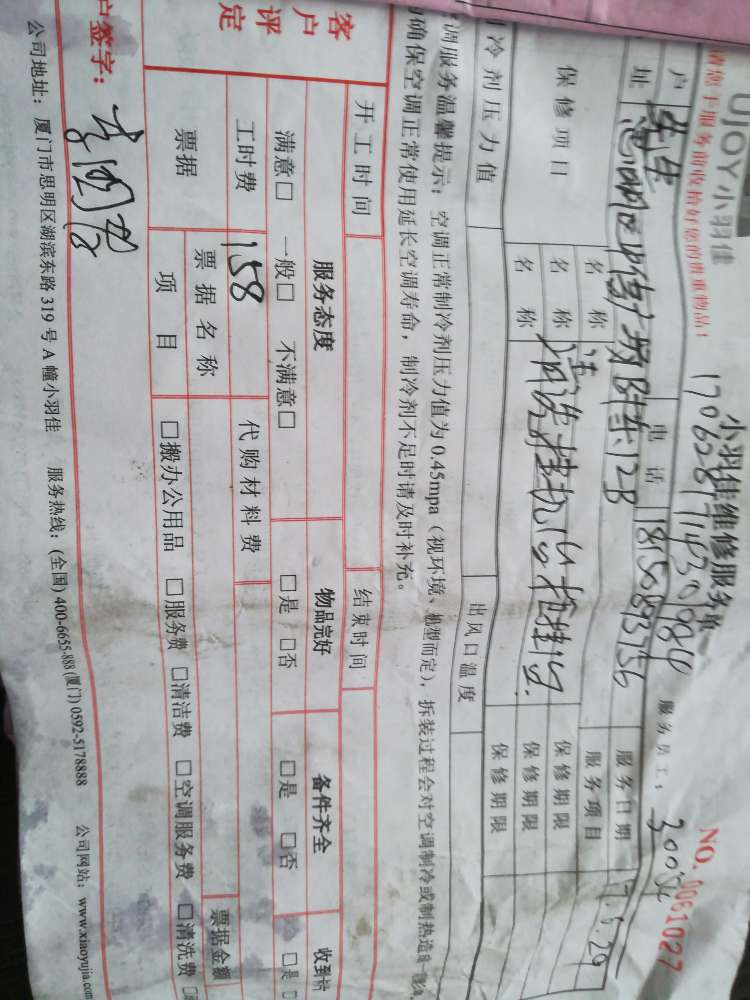 UJOY小羽佳
小羽佳维修服务单
NO. 0061027
请您于服务前收拾好您的贵重物品！
服务员工：
户
电话
18150893756
服务日期
址
思明区
12B
服务项目
保修项目
名称
保修期限
名称
清洗挂机
保修期限
名称
保修期限
制冷剂压力值
出风口温度
空调服务温馨提示：空调正常制冷剂压力值为0.45mpa（视环境、机型而定），拆装过程会对空调制冷或制热造成
确保空调正常使用延长空调寿命，制冷剂不足时请及时补充。
开工时间
结束时间
客户评定
服务态度
物品完好
备件齐全
收到
满意□ 一般□ 不满意□
□是 □否
□是 □否
□是 □
工时费
158
代购材料费
票据
票据名称
票据金额
项目
□搬办公用品 □服务费 □清洁费 □空调服务费 □清洗费 □
户签字：
公司地址：厦门市思明区湖滨东路319号A幢小羽佳 服务热线：(全国) 400-6655-888 (厦门) 0592-5178888 公司网站：www.xiaoyujia.com